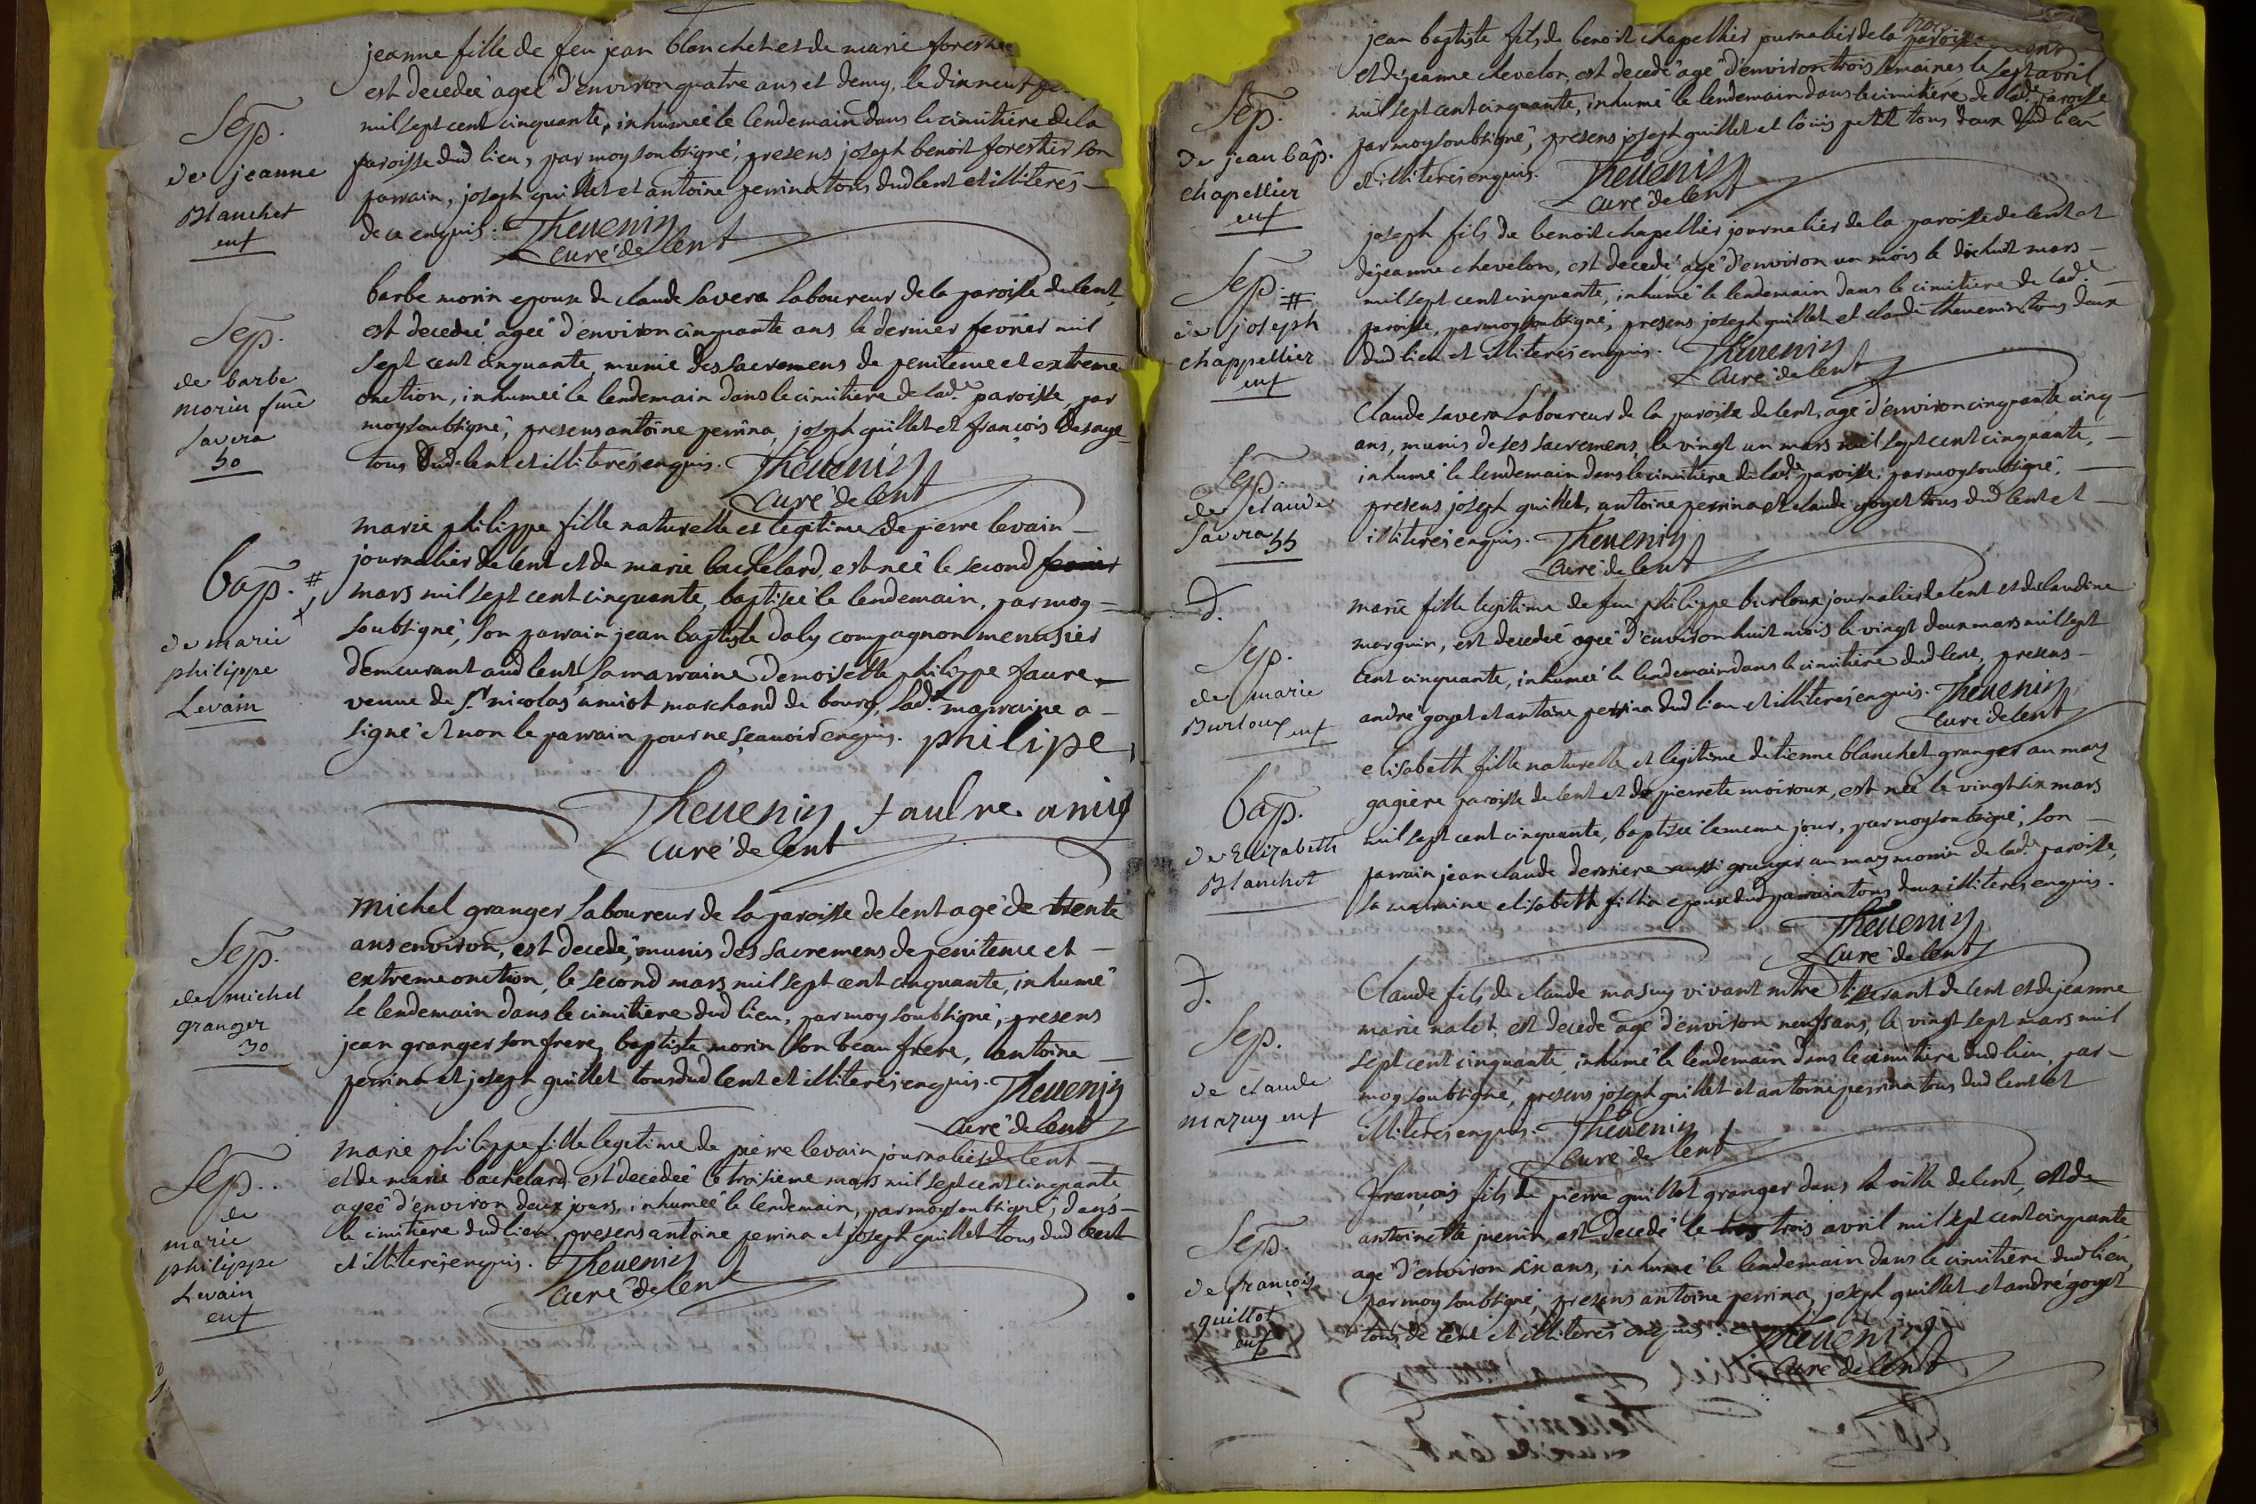 jeanne fille de feu jean blanchet et de marie forestier
est decedeé ageé d'environ quatre ans et demy, le dixneuf
mil sept cent cinquante, inhumeé le lendemain dans le cimitiere de la
paroisse dud lieu, par moy soubsigné, presens joseph benoit forestier son
parrain, joseph guillet et antoine perrina tous dud lent et illiterés
de ce enquis. Thevenin
curé de lent
Sep.
de jeanne
Blanchet
enf
barbe morin epouse de claude savera laboureur de la paroisse de lent,
est decedeé ageé d'environ cinquante ans le dernier fevrier mil
sept cent cinquante, munie des sacremens de penitence et extreme
onction, inhumeé le lendemain dans le cimitiere de lade paroisse, par
moy soubsigné, presens antoine perrina, joseph guillet et françois
tous dud lent et illiterés enquis. Thevenin
curé de lent
Sep.
de barbe
morin fme
savera
50
marie philippe fille naturelle et legitime de pierre levain
journalier de lent et de marie bachelard, est neé le second fevrier
mars mil sept cent cinquante, baptiseé le lendemain, par moy
soubsigné, son parrain jean baptiste daly compagnon menusier
demeurant aud lent, sa marraine demoiselle philippe faure
veuve de sr nicolas amiot marchand de bourg, lade marraine a
signé et non le parrain pour ne sçauoir enquis. philipe
Thevenin faulre amiy
curé de lent
bap. #
de marie
philippe
Levain
michel granger laboureur de la paroisse de lent agé de trente
ans environ, est decedé, munis des sacremens de penitence et
extreme onction, le second mars mil sept cent cinquante, inhumé
le lendemain dans le cimitiere dud lieu, par moy soubsigné, presens
jean granger son frere, baptiste morin son beau frere, antoine
perrina et joseph guillet tous dud lent et illiterés enquis. Thevenin
curé de lent
Sep.
de michel
granger
30
marie philippe fille legitime de pierre levain journalier de lent
et de marie bachelard est decedeé le troisieme mars mil sept cent cinquante
ageé d'environ deux jours, inhumeé le lendemain, par moy soubsigné, dans
le cimitiere dud lieu, presens antoine perrina et joseph guillet tous dud lent
et illiterés enquis. Thevenin
curé de lent
Sep.
de
marie
philippe
Levain
enf
jean baptiste fils de benoit chapellier journalier de la paroisse
et de jeanne chevelon, est decedé agé d'environ trois semaines le sept avril
mil sept cent cinquante, inhumé le lendemain dans le cimitiere de lade paroisse
par moy soubsigné, presens joseph guillet et loüis petit tous deux dud lieu
et illiterés enquis. Thevenin
curé de lent
Sep.
de jean bap.
chapellier
enf
joseph fils de benoit chapellier journalier de la paroisse de lent et
de jeanne chevelon, est decedé agé d'environ un mois le dixhuit mars
mil sept cent cinquante, inhumé le lendemain dans le cimitiere de lade
paroisse, par moy soubsigné, presens joseph guillet et claude thevenin tous deux
dud lieu et illiterés enquis. Thevenin
curé de lent
Sep. #
de joseph
chappellier
enf
Claude savera laboureur de la paroisse de lent, agé d'environ cinquante cinq
ans, munis de ses sacremens, le vingt un mars mil sept cent cinquante,
inhumé le lendemain dans le cimitiere de lade paroisse, par moy soubsigné,
presens joseph guillet, antoine perrina et claude goyet tous dud lent et
illiterés enquis. Thevenin
curé de lent
Sep.
de claude
savera 55
marie fille legitime de feu philippe burloux journalier de lent et de claudine
morguin, est decedeé ageé d'environ huit mois le vingt deux mars mil sept
cent cinquante, inhumeé le lendemain dans le cimitiere dud lent, presens
andré goyet et antoine perrina dud lieu et illiterés enquis. Thevenin
curé de lent
d.
Sep.
de marie
Burloux enf
elisabeth fille naturelle et legitime d'etienne blanchet granger au mas
gagiere paroisse de lent et de pierrete moiroux, est neé le vingt six mars
mil sept cent cinquante, baptiseé le meme jour, par moy soubsigné, son
parrain jean claude derriere aussi granger au mas monin de lade paroisse,
la marraine elisabeth fillia epouse dud parrain tous deux illiterés enquis.
Thevenin
curé de lent
bap.
de Elizabeth
Blanchet
Claude fils de claude masuy vivant mtre tisserant de lent et de jeanne
marie nalet, est decedé agé d'environ neuf ans, le vingt sept mars mil
sept cent cinquante, inhumé le lendemain dans le cimitiere dud lieu, par
moy soubsigné, presens joseph guillet et antoine perrina tous dud lent et
illiterés enquis. Thevenin
curé de lent
d.
Sep.
de claude
mazuy enf
françois fils de pierre guillot granger dans la ville de lent, et de
antoinette perrin, est decedé le trois avril mil sept cent cinquante,
agé d'environ six ans, inhumé le lendemain dans le cimitiere dud lieu,
par moy soubsigné, presens antoine perrina, joseph guillet et andré goyet
tous de lent et illiterés enquis. Thevenin
curé de lent
Sep.
de françois
guillot
enf